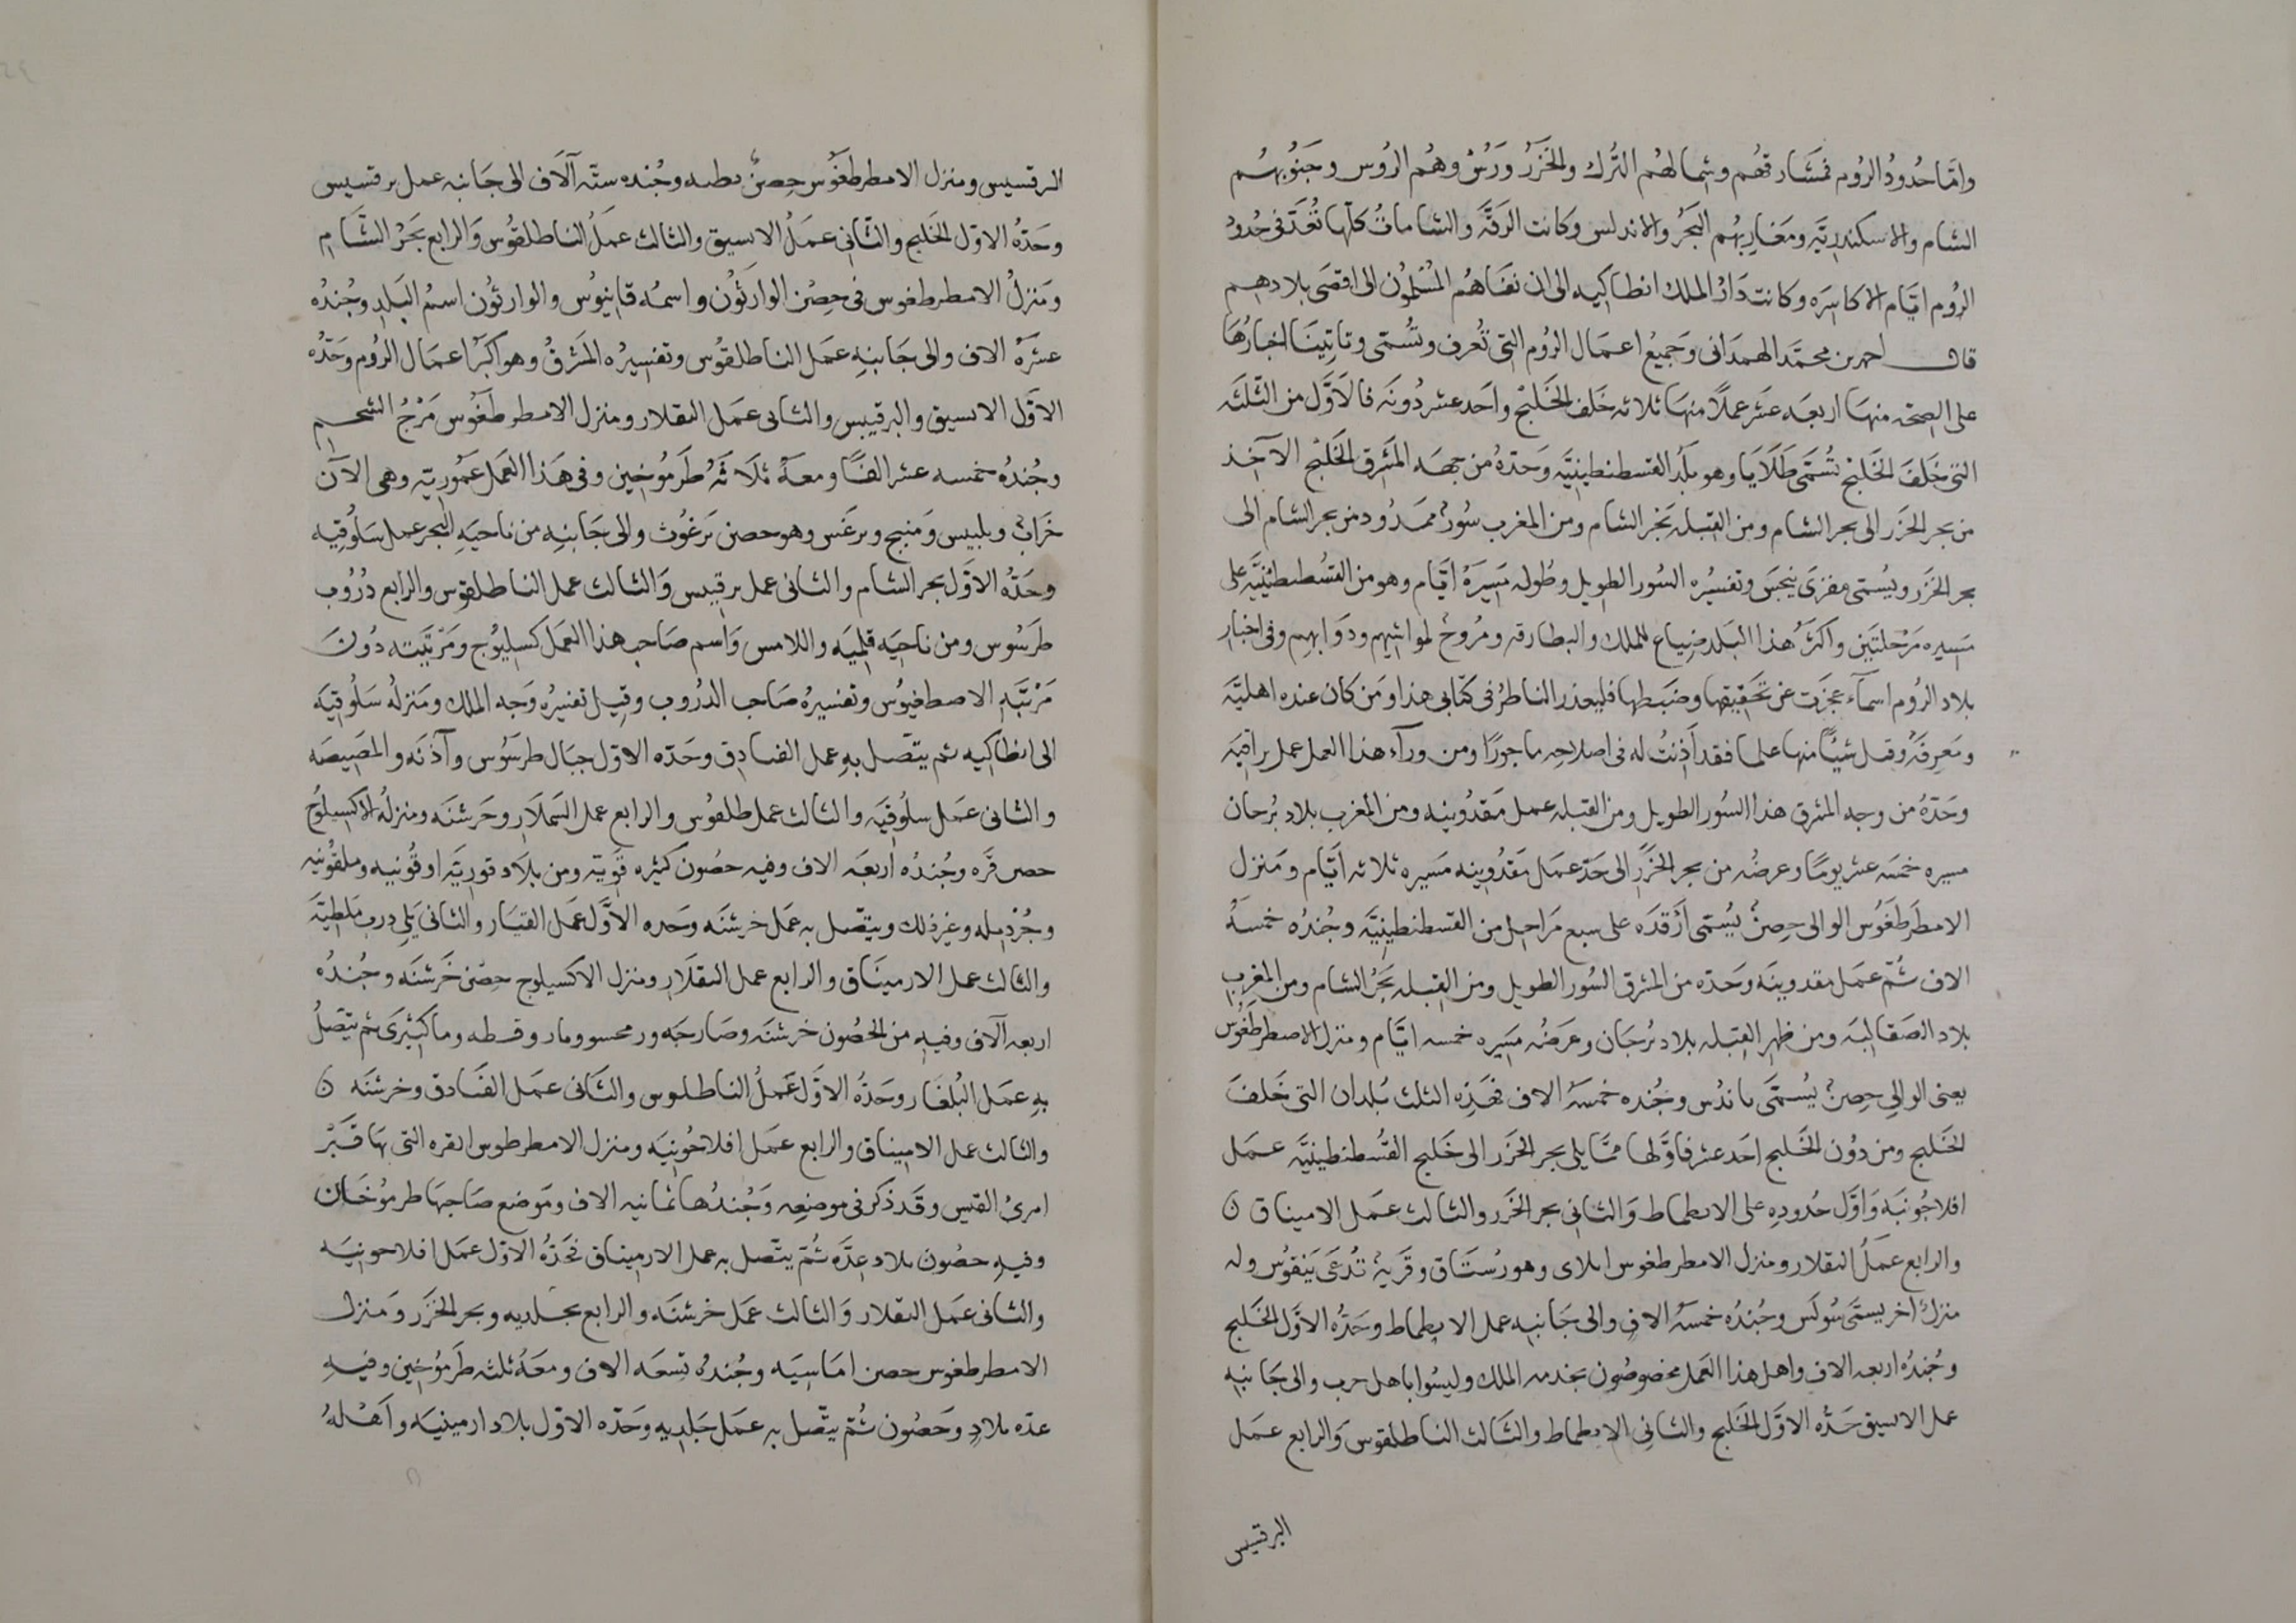 وامّا حُدودُ الرُوم فمَشَارقهُم وشمالهُم التُرك والخَزَرُ ورُسْ وهُم الرُوس وجَنُوبهُم
الشام والاسكندريَّه ومَغاربهُم البَحرُ والاندلس وكانت الرَقَّه والشاماتُ كلّها تُعَدّ فى حُدود
الرُوم ايّام الاكاسِرَه وكانت دَارُ الملك انطاكيه الى ان نفاهُم المُسْلمُون الى اقصَى بلادهم
قال احمد بن محمّد الهمدانى وجَميعُ اعمَال الرُوم التى تُعرف وتُسمّى وتاتينَا اخبارُها
على الصحّه منها اربعَه عشر عملاً منها ثلاثه خَلف الخَليْج واَحد عشر دُونَه فالاَوَّل من الثلثه
التى خَلفَ الخَليْج تُسَمَّى طَلَايَا وهو بَلَدُ القسطنطينيَّه وَحدّهُ من جهَه المَشرق الخَليْج الآخذ
من بحر الخَزَر الى بحر الشام ومن القبله بَحْر الشام ومن المغرب سُورٌ ممدُود من بحر الشام الى
بحر الخَزَر ويُسمّى مقزى نيخس وتفسيرُه السُور الطويل وطُوله مَسِيرَهُ ايَّام وهو من القسطنطينيَّه على
مَسِيره مَرْحلتَين واكثرُ هذا البَلد ضِياع للملك والبطارقه ومُروجٌ لمواشيهم ودَوابهم وفى اخبار
بلاد الرُوم اسمآء عجزت عن تحقيقها وضَبطها فليعذر الناظرُ فى كتابى هذا ومَن كان عنده اهليَّه
ومَعرفَهٌ وقتل شَيئًا منها علما فقد اَذِنتُ له فى اصلاحِه ماجورًا ومن ورآء هذا العمل عمل تراقيَه
وحَدّهُ من وجه المشرق هذا السُور الطويل ومن القبله عمل مَقدُونيه ومن المغرب بلاد بُرجان
مسيره خمسَه عشر يومًا وعرضُه من بحر الخَزَر الى حَدّ عمَل مَقدُونيه مَسيره ثلاثه اَيَّام ومَنزل
الاصطَرطَغُوس الوالى حِصنٌ يُسمّى اَرْقدَه على سبع مَراحل من القسطنطينِيَّه وجُندُه خمسَهُ
الاف ثُمّ عمَل مقدونيَه وحَدّه من المشرق السُور الطويل ومن القبله بَحرُ الشام ومن المغرب
بلاد الصَقالبَه ومن ظهر القبله بلاد بُرجَان وعَرضُه مَسِيره خمسه ايَّام ومنزل الاصطرطغُوس
يعنى الوالِى حِصنٌ يُسمَّى باندُس وجُنده خمسهُ الاف فهَذِه الثلث بُلدان التى خَلفَ
الخَليج ومن دُون الخَليج اَحَد عشر فاوَّلها ممَّا يلى بحر الخَزَر الى خَليج القُسطنطينيَّه عمَل
افلاجُونيَه وَاوَّل حُدودِه على الانطماط وَالثانى بحر الخَزَر والثالث عمَل الاميناق ن
والرابع عمَلُ البقلار ومنزل الاصطرطغوس ايلاى وهو رُستَاق وقَريهٌ تُدعَى نيَقُوس وله
منزلٌ اخر يسمّى سُولَس وجُندُه خمسَهُ الافٍ والى جَانبِه عمل الابطماط وحَدُّه الاَوَّل الخَليج
وجُندُه اربعه الاف واهل هذا العَمل مخصُوصُون بخدمه الملك وليسُوا باهل حرب والى جَانبِه
عمل الابسيق حَدُّه الاَوَّل الخَليج والثانِى الابطماط والثَالث الناطلقوس وَالرابع عمَل
البرقسيس
البرقسيس ومنزل الاصطرطغُوس حِصنٌ وجُنده ستّه آلَاف الى جَانبه عمل برقسيس
وحَدّهُ الاوّل الخَليج والثَانى عمَلُ الابسيق والثالث عمَلُ الناطلقُوس وَالرابع بَحرُ الشَام
ومَنزلُ الاصطرطغوس فى حِصْن الوارثُون واسمُه قانيُوس والوارثُون اسمُ البَلدِ وجُندُه
عشرَهُ الاف والى جَانبِه عمَل الناطلقُوس وتفسيرُه المَشرقُ وهو اكبَرُ اعمَال الرُوم وحَدّه
الاَوَّل الابسيق والبرقيس والثانى عمَل البقلار ومنزل الاصطرطَغُوس مَرْجُ الشحم
وجُندُه خمسه عشر الفًا ومعهُ ثلَاثَهُ طَرمُوخين وفى هَذا العمَل عَمُّوريّه وهى الآن
خَرَابٌ وبلبيس وَمَنبج وبرغَس وهو حصن بَرغُوث والى جَانبِه من ناحيَهِ البَحر عمل سَلُوقيه
وحَدّهُ الاوّل بحر الشام والثانى عمل برقيس وَالثالث عمل الناطلقوس والرابع دُرُوب
طَرسُوس ومن ناحيَه قلميَه واللامس وَاسم صاحِب هذا العمَل كسليُوج ومَرْتَبَته دُونَ
مَرْتبَهِ الاصطغيُوس وتفسيرُه صَاحب الدُروب وقيل تفسيرُه وَجه الملك ومَنزلهُ سَلُوقيَه
الى انطاكيه ثم يتصّل بهِ عمل القبادق وحَدّه الاوّل جبَال طرسُوس واَذَنَه والمصّيصَه
والثانى عمَل سلُوقيَه والثالث عمل طلقُوس والرابع عمل السَملَار وخَرشنَه ومنزلهُ الاكسيلُوج
حصن قُرَّه وجُندُه اربعَه الاف وفيه حصُون كثيره قويّه ومن بلاَد قوريَّه او قُونيه وملقُونيه
وجُرْدِيله وغيرذلك ويتصّل به عمَل خرشنَه وحَده الاَوَّل عمَل القبَار والثانى يَلى دربَ مَلَطيَّه
والثالث عمل الارمينَاق والرابع عمل البقلَار ومنزل الاكسيلوج حِصْن خَرشنَه وجُندُه
اربعه آلاف وفيه من الحصُون خرشنَه وصَارخَه ثم يتّصَلُ
بهِ عمَل البُلغَار وحَدّهُ الاَوَّل عَمَلُ الناطلوس والثَانى عمَل القبَادق وخرشنَه ن
والثالث عمل الاميناق والرابع عمَل افلاخُونيَه ومنزل الاصطرطوس انقره التى بهَا قَبْرُ
امرئ القيس وقَد ذكر فى موضعِه وَجُندُها ثمانيه الاف ومَوضع صَاحبهَا طرمُوخَان
وفيه حصُون بلاد عِدَّه ثُمّ يتّصل به عمل الارميناق فحَدّهُ الاوّل عمَل افلاحونيَه
والثانى عمَل البقلار وَالثالث عمَل خرشنَه والرابع بجلديه وبحر الخَزَر وَمَنزل
الاصطرطغوس حصن امَاسِيَه وجُندهُ تسعَه الاف ومعَهُ ثلثه طَرمُوخين وفيهِ
عدّه بلادٍ وحَصُون ثُمّ يتّصل به عمَل جَلدِيه وحَدّه الاوّل بلاد ارمينيَه وَاَهْلهُ